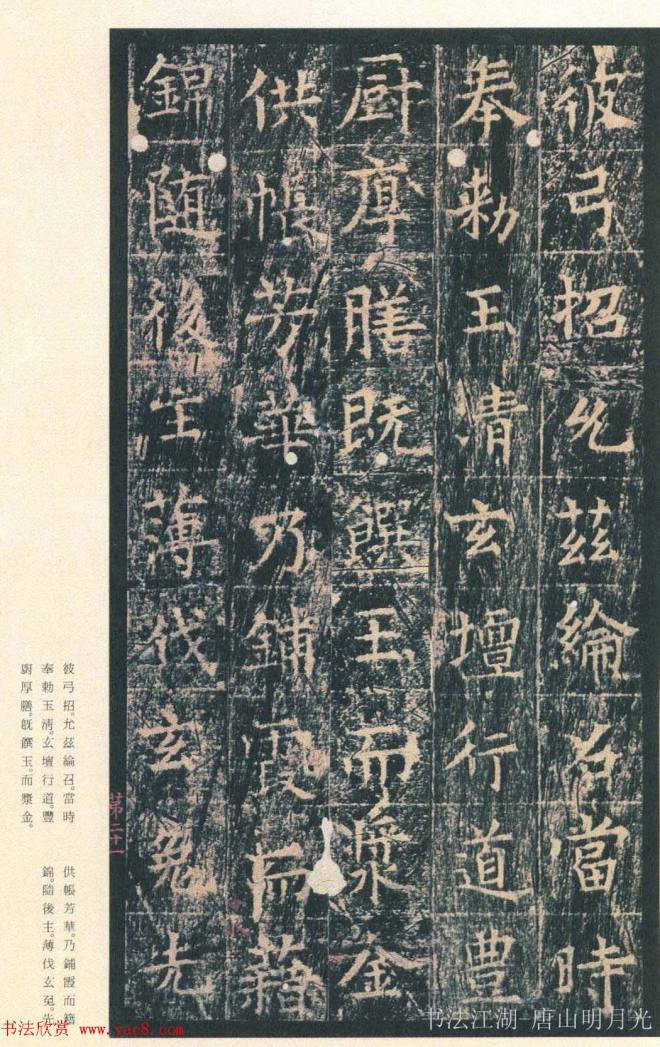 彼弓招允茲綸召當時
奉勅玉清玄壇行道豊
厨厚膳既饌玉而漿金
供帳芳華乃鋪霞而藉
錦随後主薄伐玄兔先
彼弓招。允茲綸召。當時
奉勅玉清。玄壇行道。豐
廚厚膳。既饌玉。而漿金。
供帳芳華。乃鋪霞而藉
錦。隨後主。薄伐玄菟。先
第二十一
书法欣赏 www.yac8.com
书法江湖-唐山明月光